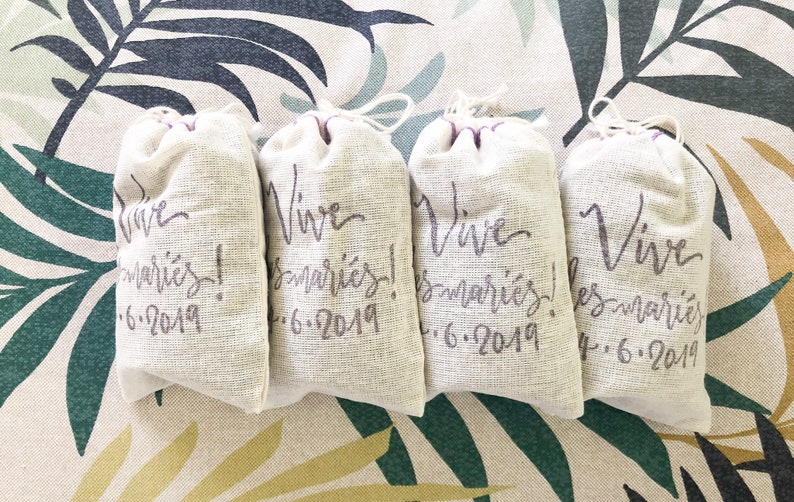 Vive
mariés!
6.2019
Vive
les mariés!
.6.2019
Vive
les mariés!
.6.2019
Vive
les mariés
4.6.2019